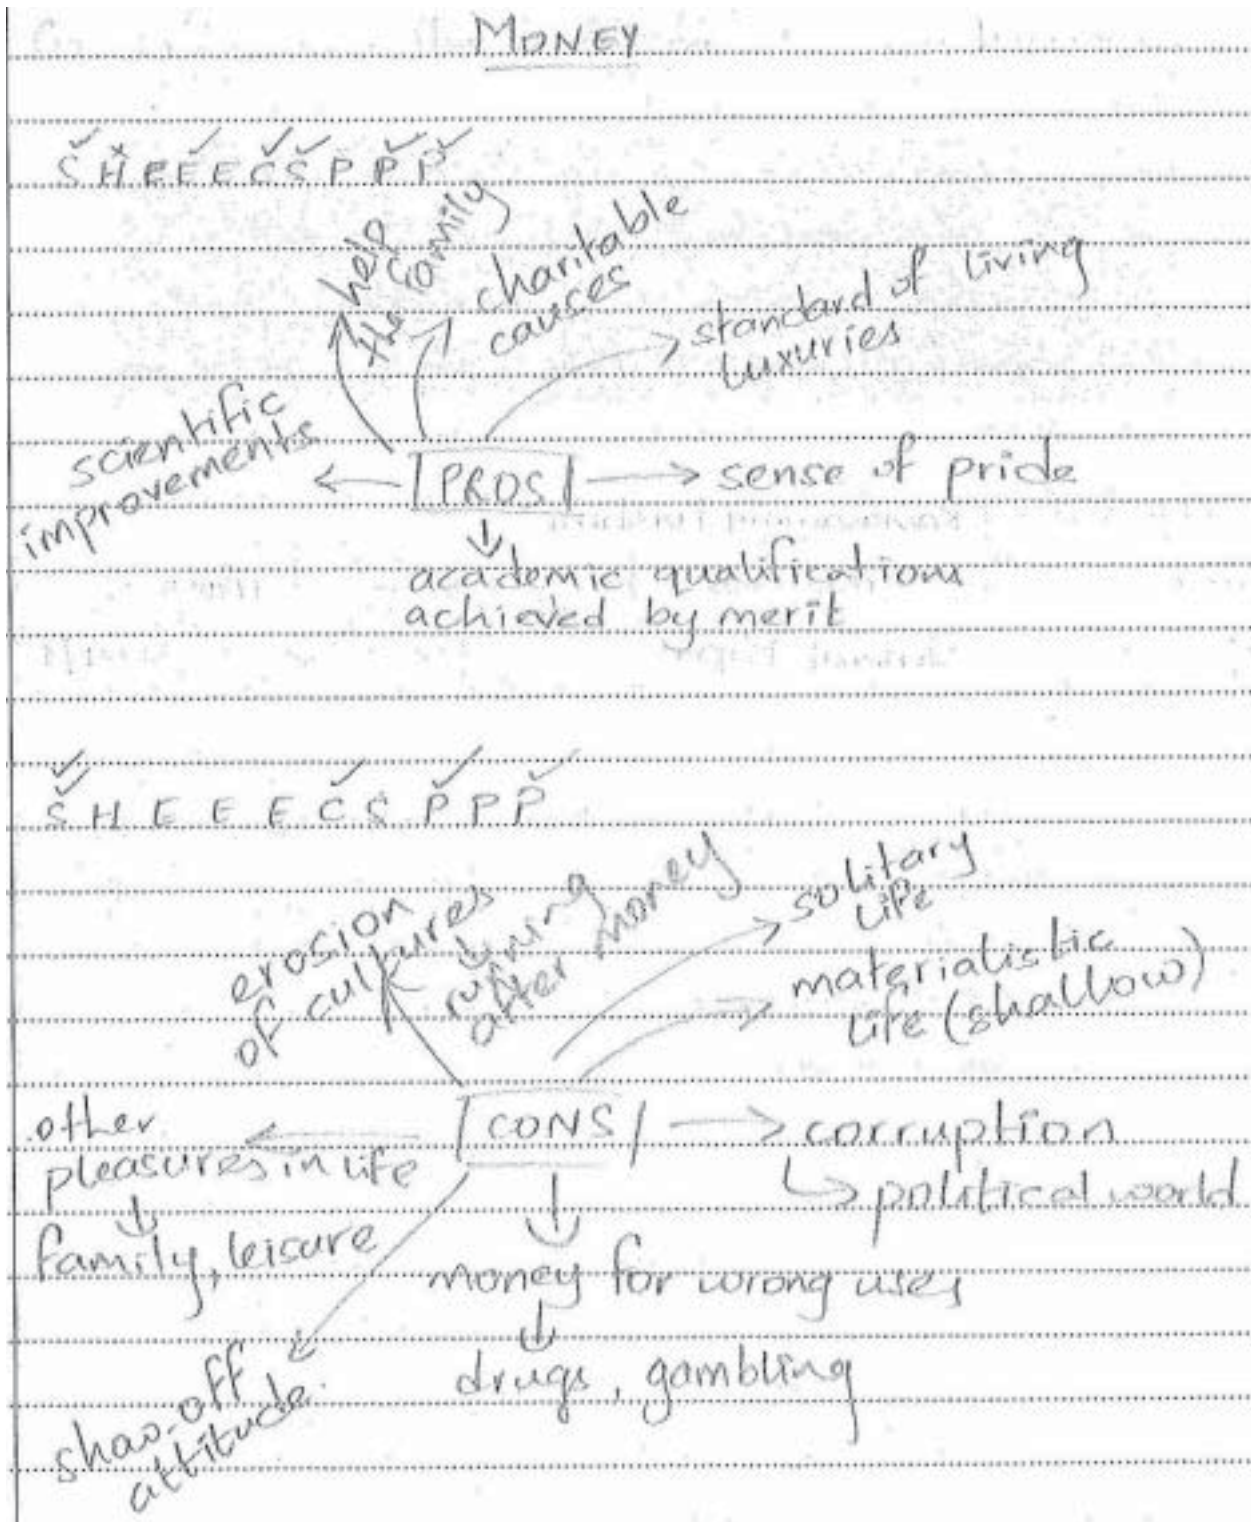 MONEY
S H E E E C S P P P
help
the family
charitable
causes
standard of living
luxuries
scientific
improvements
PROS
sense of pride
academic qualifications
achieved by merit
S H E E E C S P P P
erosion
of cultures
running
after money
solitary
life
materialistic
life (shallow)
other
pleasures in life
family, leisure
CONS
corruption
political world
money for wrong uses
drugs, gambling
show-off
attitude